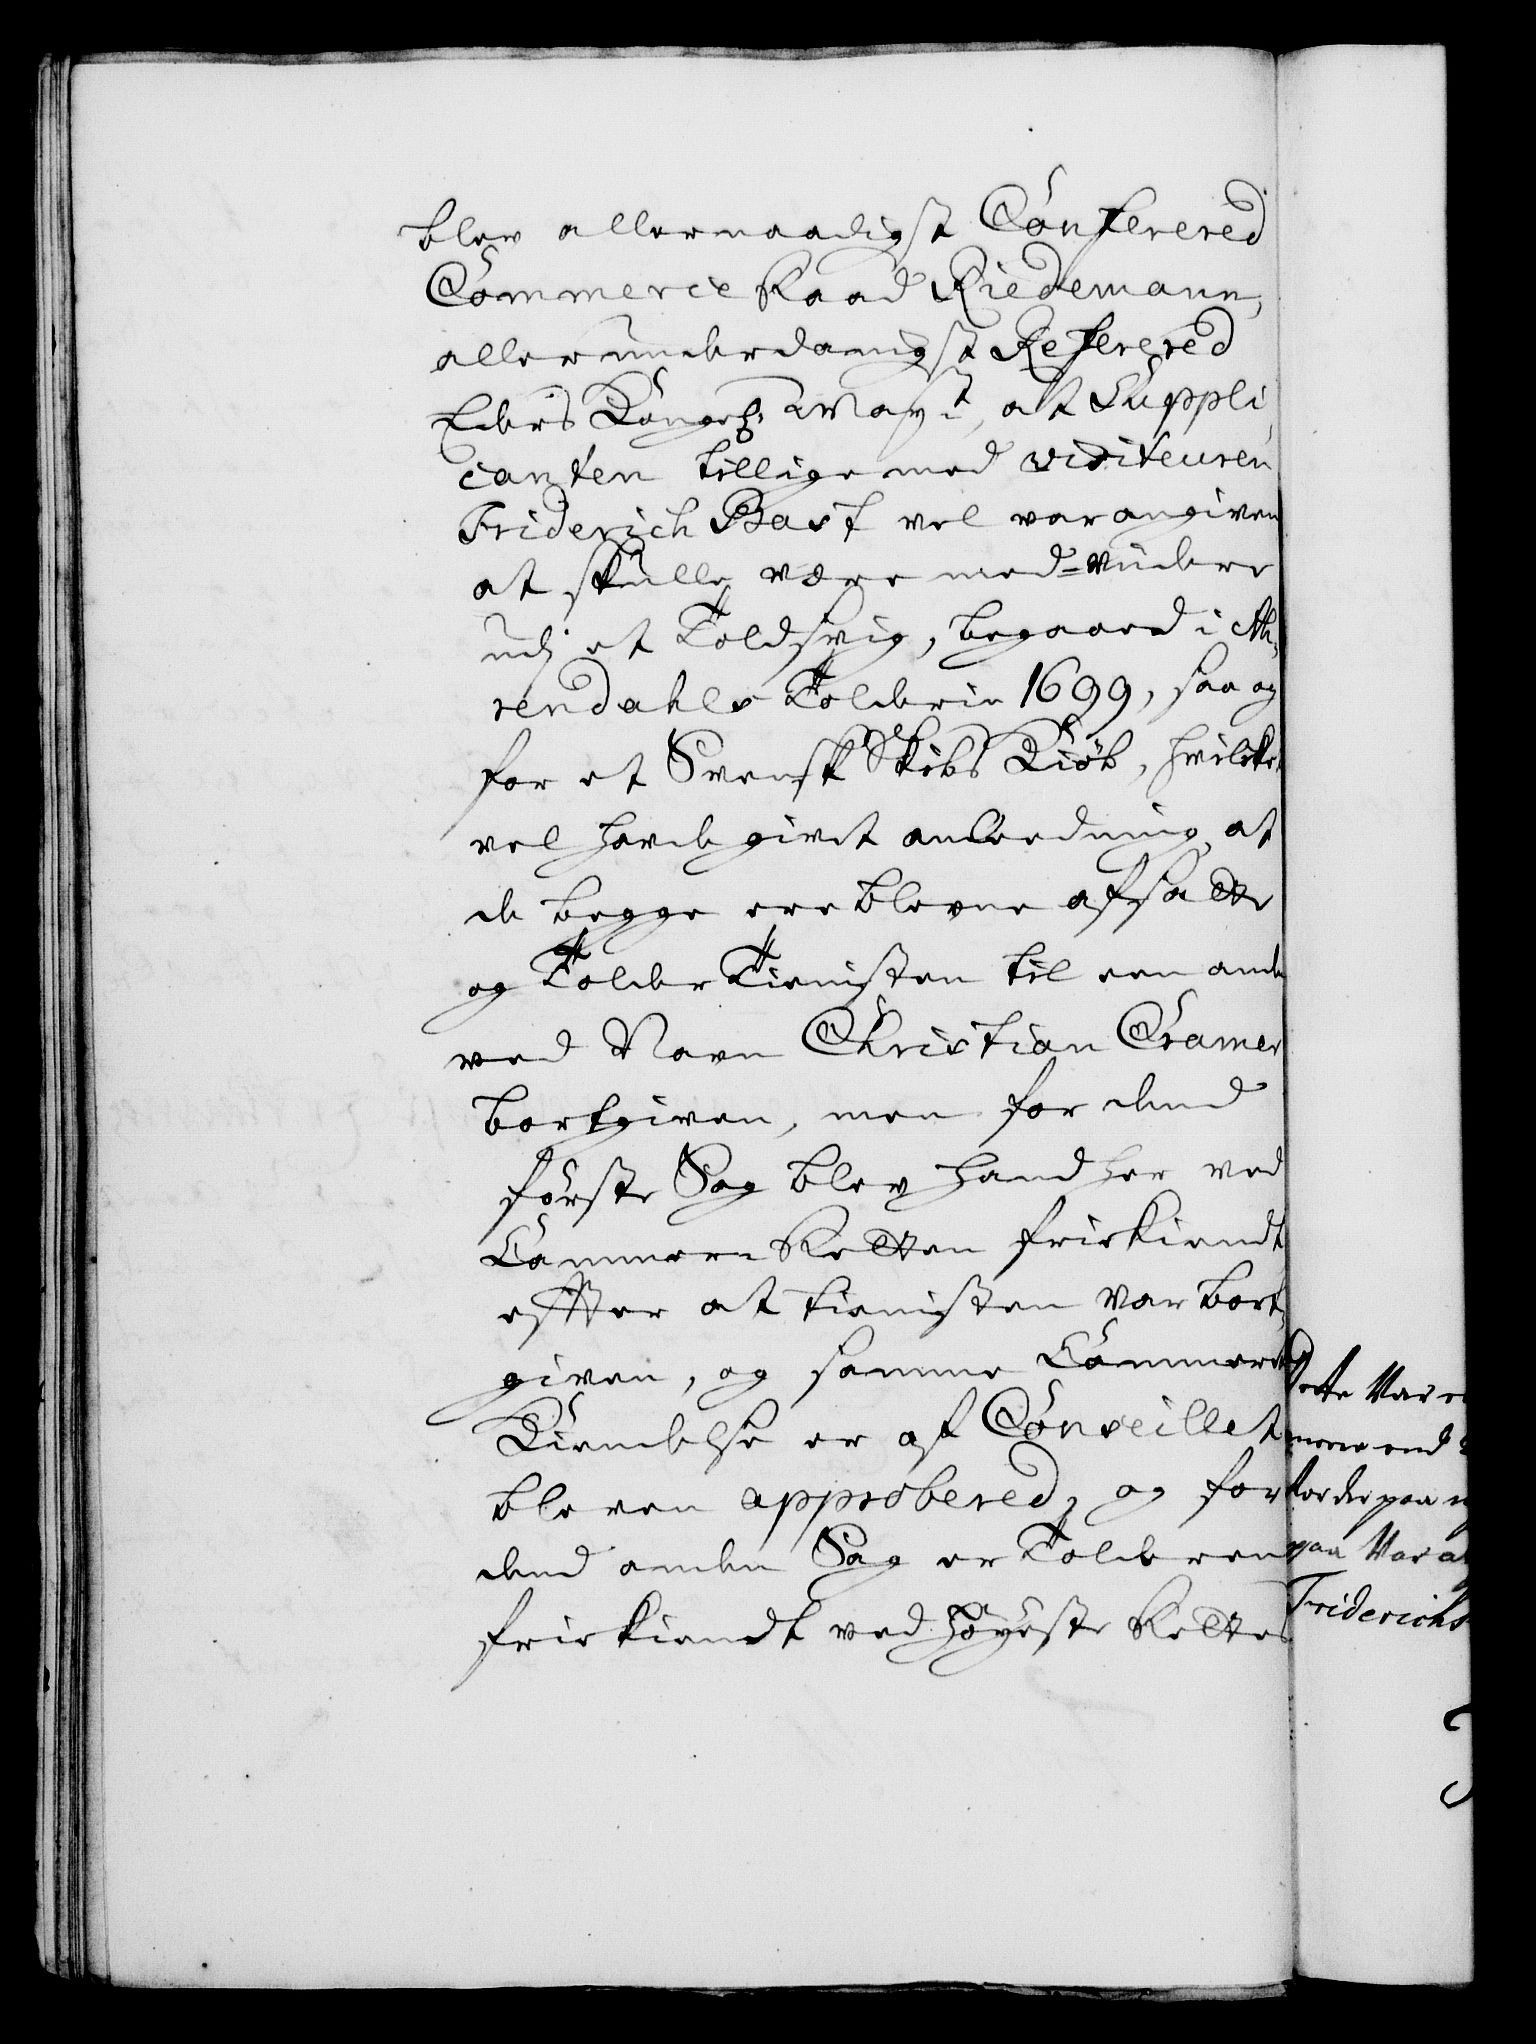 blev allernaadigst Conferered
Commerce Raad Riedemann,
allerunderdanigst Referered
Eders Kongel: Mayt, at Suppli
canten tillige med visiteuren
Friderich Bast vel var angiven
at skulle være med-videre
udj et Toldsvig, begaaed i Ah,
rendahls Tolderie 1699, saa og
for et Svensk Skibs Kiøb, hvilket
vel hafde givet anledning, at
de begge ere blevne afsatte
og Tolder Tienisten til een anden
ved Navn Christian Cramer
bortgiven, men for dend
første Sag blev hand her ved
Cammer-Retten frikiendt
efter at tienisten var bort,
given, og samme Cammer
Kiendelse er af Conseillet
bleven approbered, og for
dend anden Sag er Tolderen
frikiendt ved Høyeste Rettes
dette Var
meere end
for der paa
paa Var
Friderichs